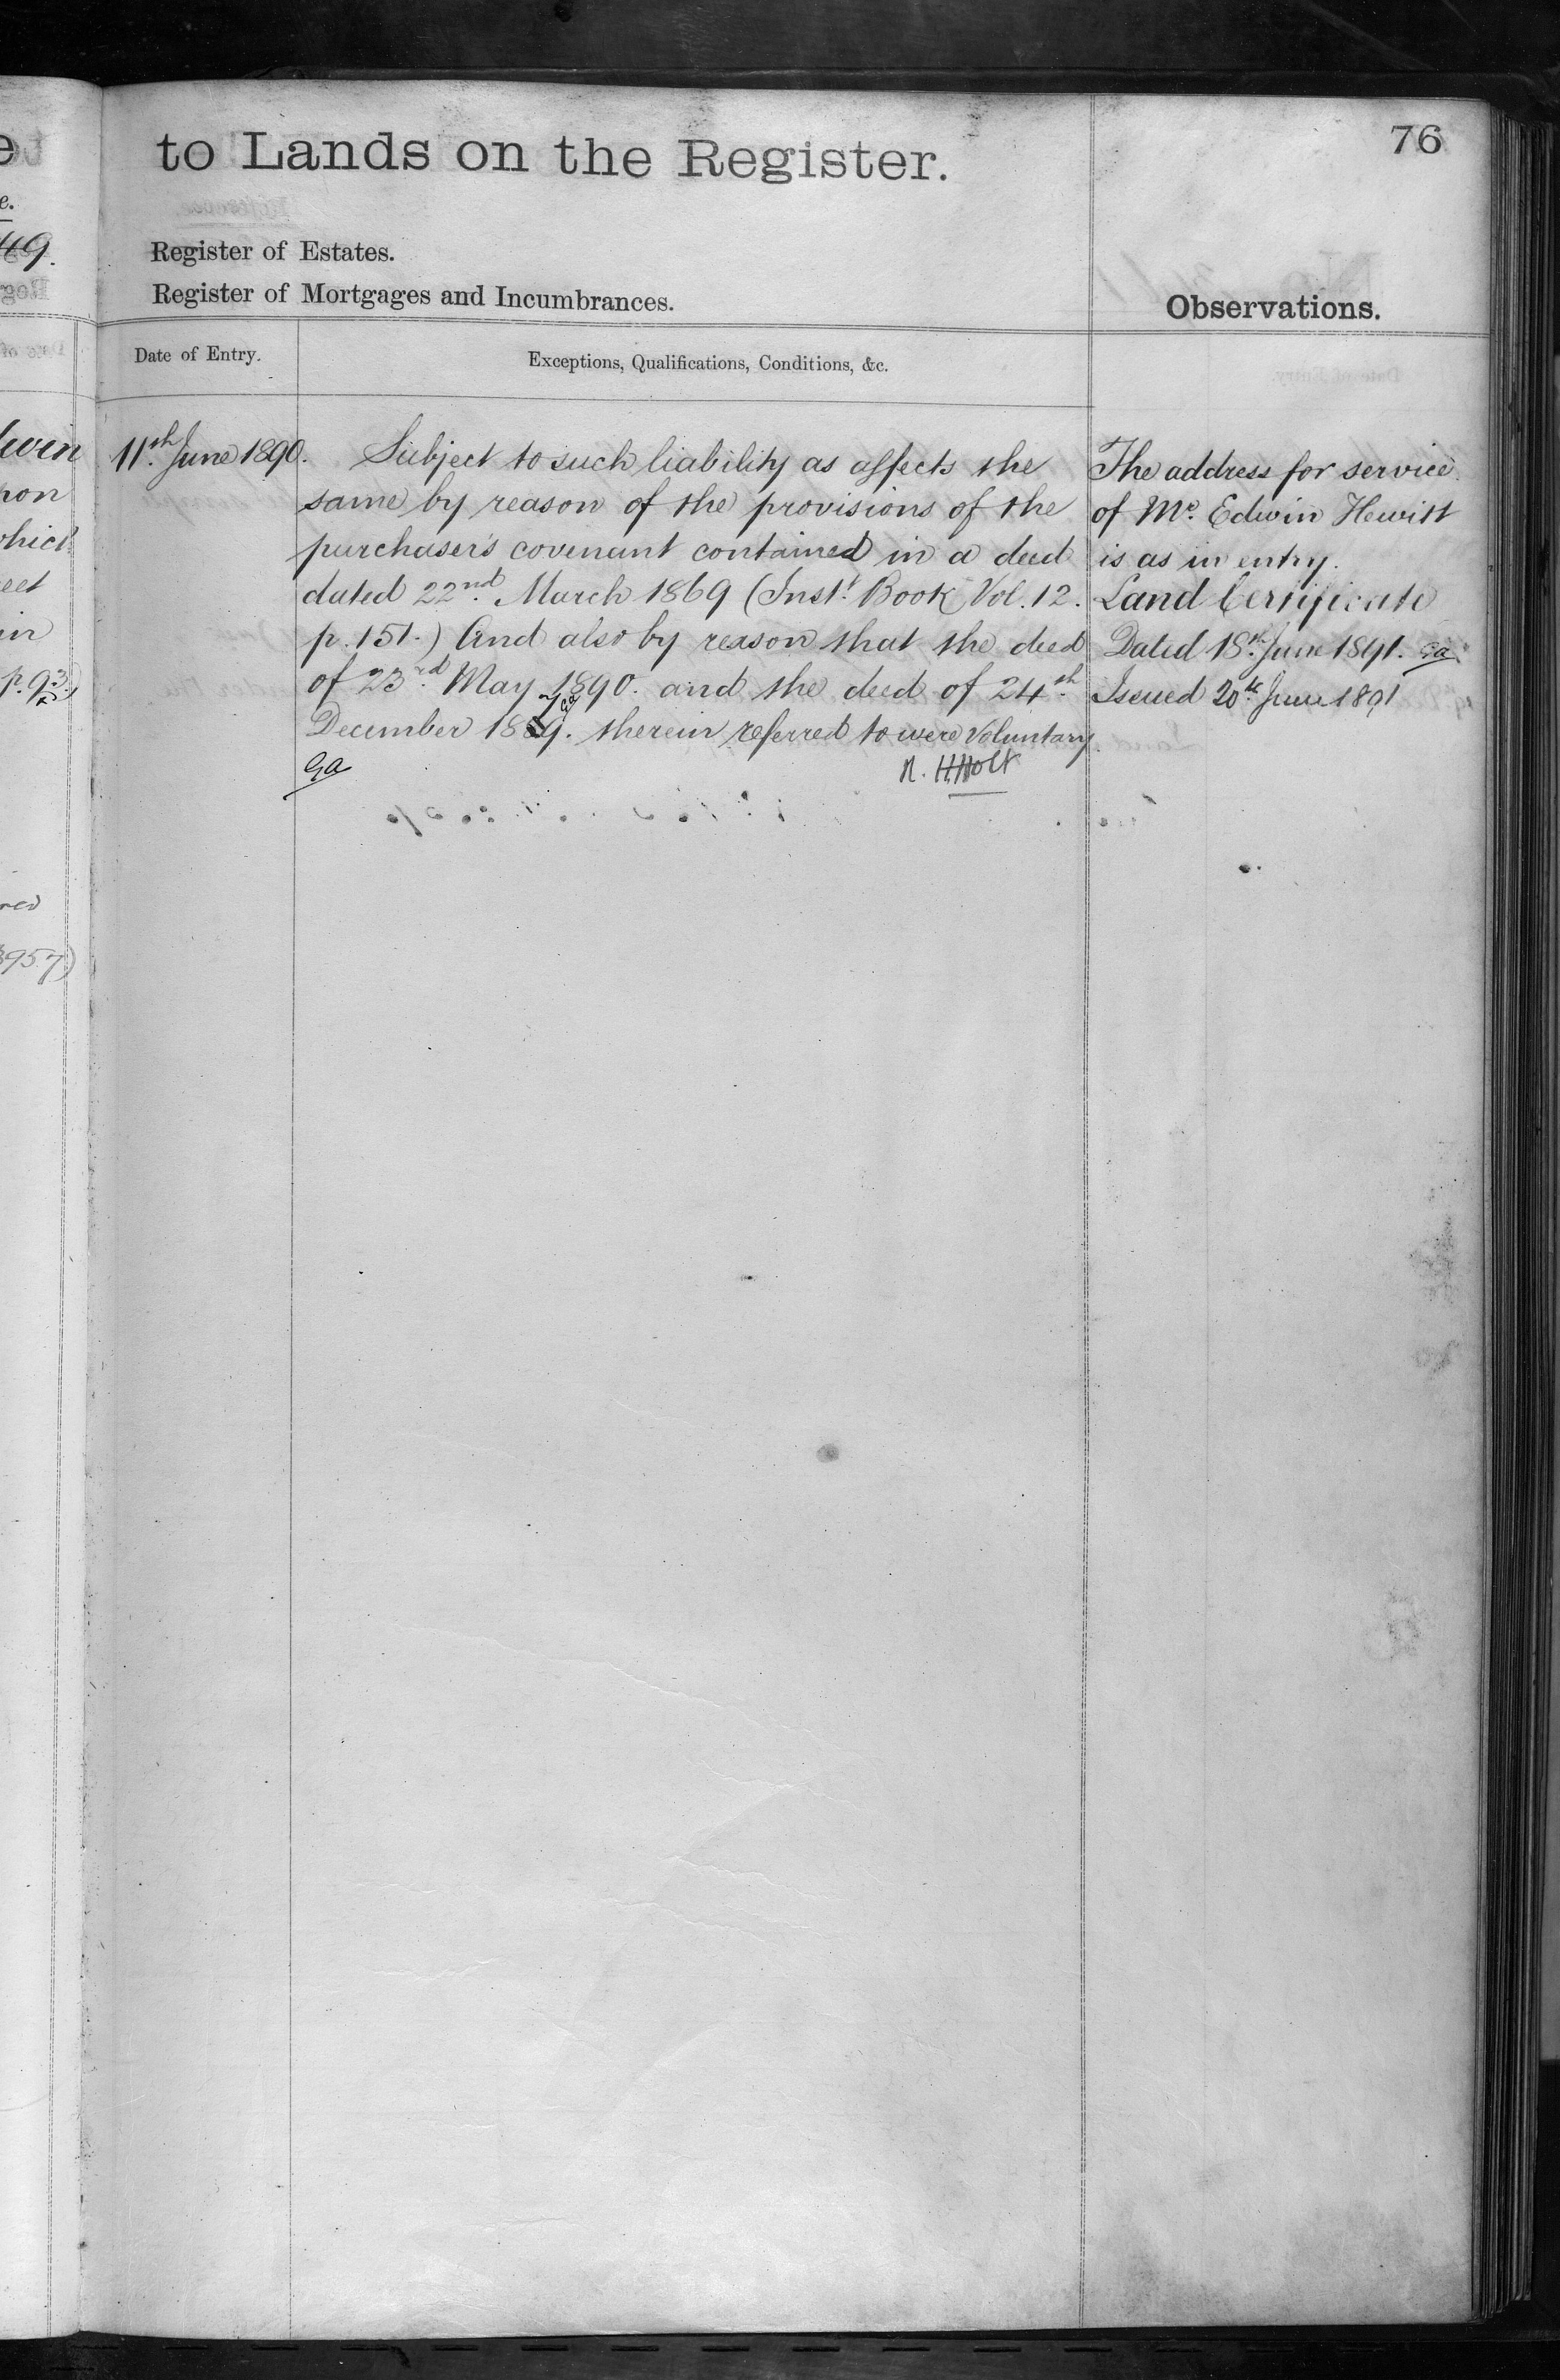 76
to Lands on the Register.
Register of Estates.
Register of Mortgages and Incumbrances.
Observations.
Date of Entry.
Exceptions, Qualifications, Conditions, &c.
11th June 1890.
Subject to such liability as affects the
same by reason of the provisions of the
purchaser's covenant contained in a deed
dated 22nd March 1869 (Inst. Book Vol. 12.
p. 151.) And also by reason that the deed
of 23rd May 1890. and the deed of 24th
December 1889. therein referred to were voluntary.
ga
R. H. Holt
The address for service
of Mr. Edwin Hewitt
is as in entry.
Land Certificate
Dated 18th June 1891. ga
Issued 20th June 1891
e
e.
49.
hon
which
eet
in
p. 93.)
red
3957)